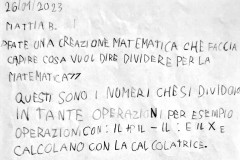 26/01/2023
MATTIA B.
FATE UNA CREAZIONE MATEMATICA CHE FACCIA
CAPIRE COSA VUOL DIRE DIVIDERE PER LA
MATEMATICA
QUESTI SONO I NUMERI CHE SI DIVIDONO
IN TANTE OPERAZIONI. PER ESEMPIO
OPERAZIONI CON: IL + IL - IL : E IL X E
CALCOLANO CON LA CALCOLATRICE.